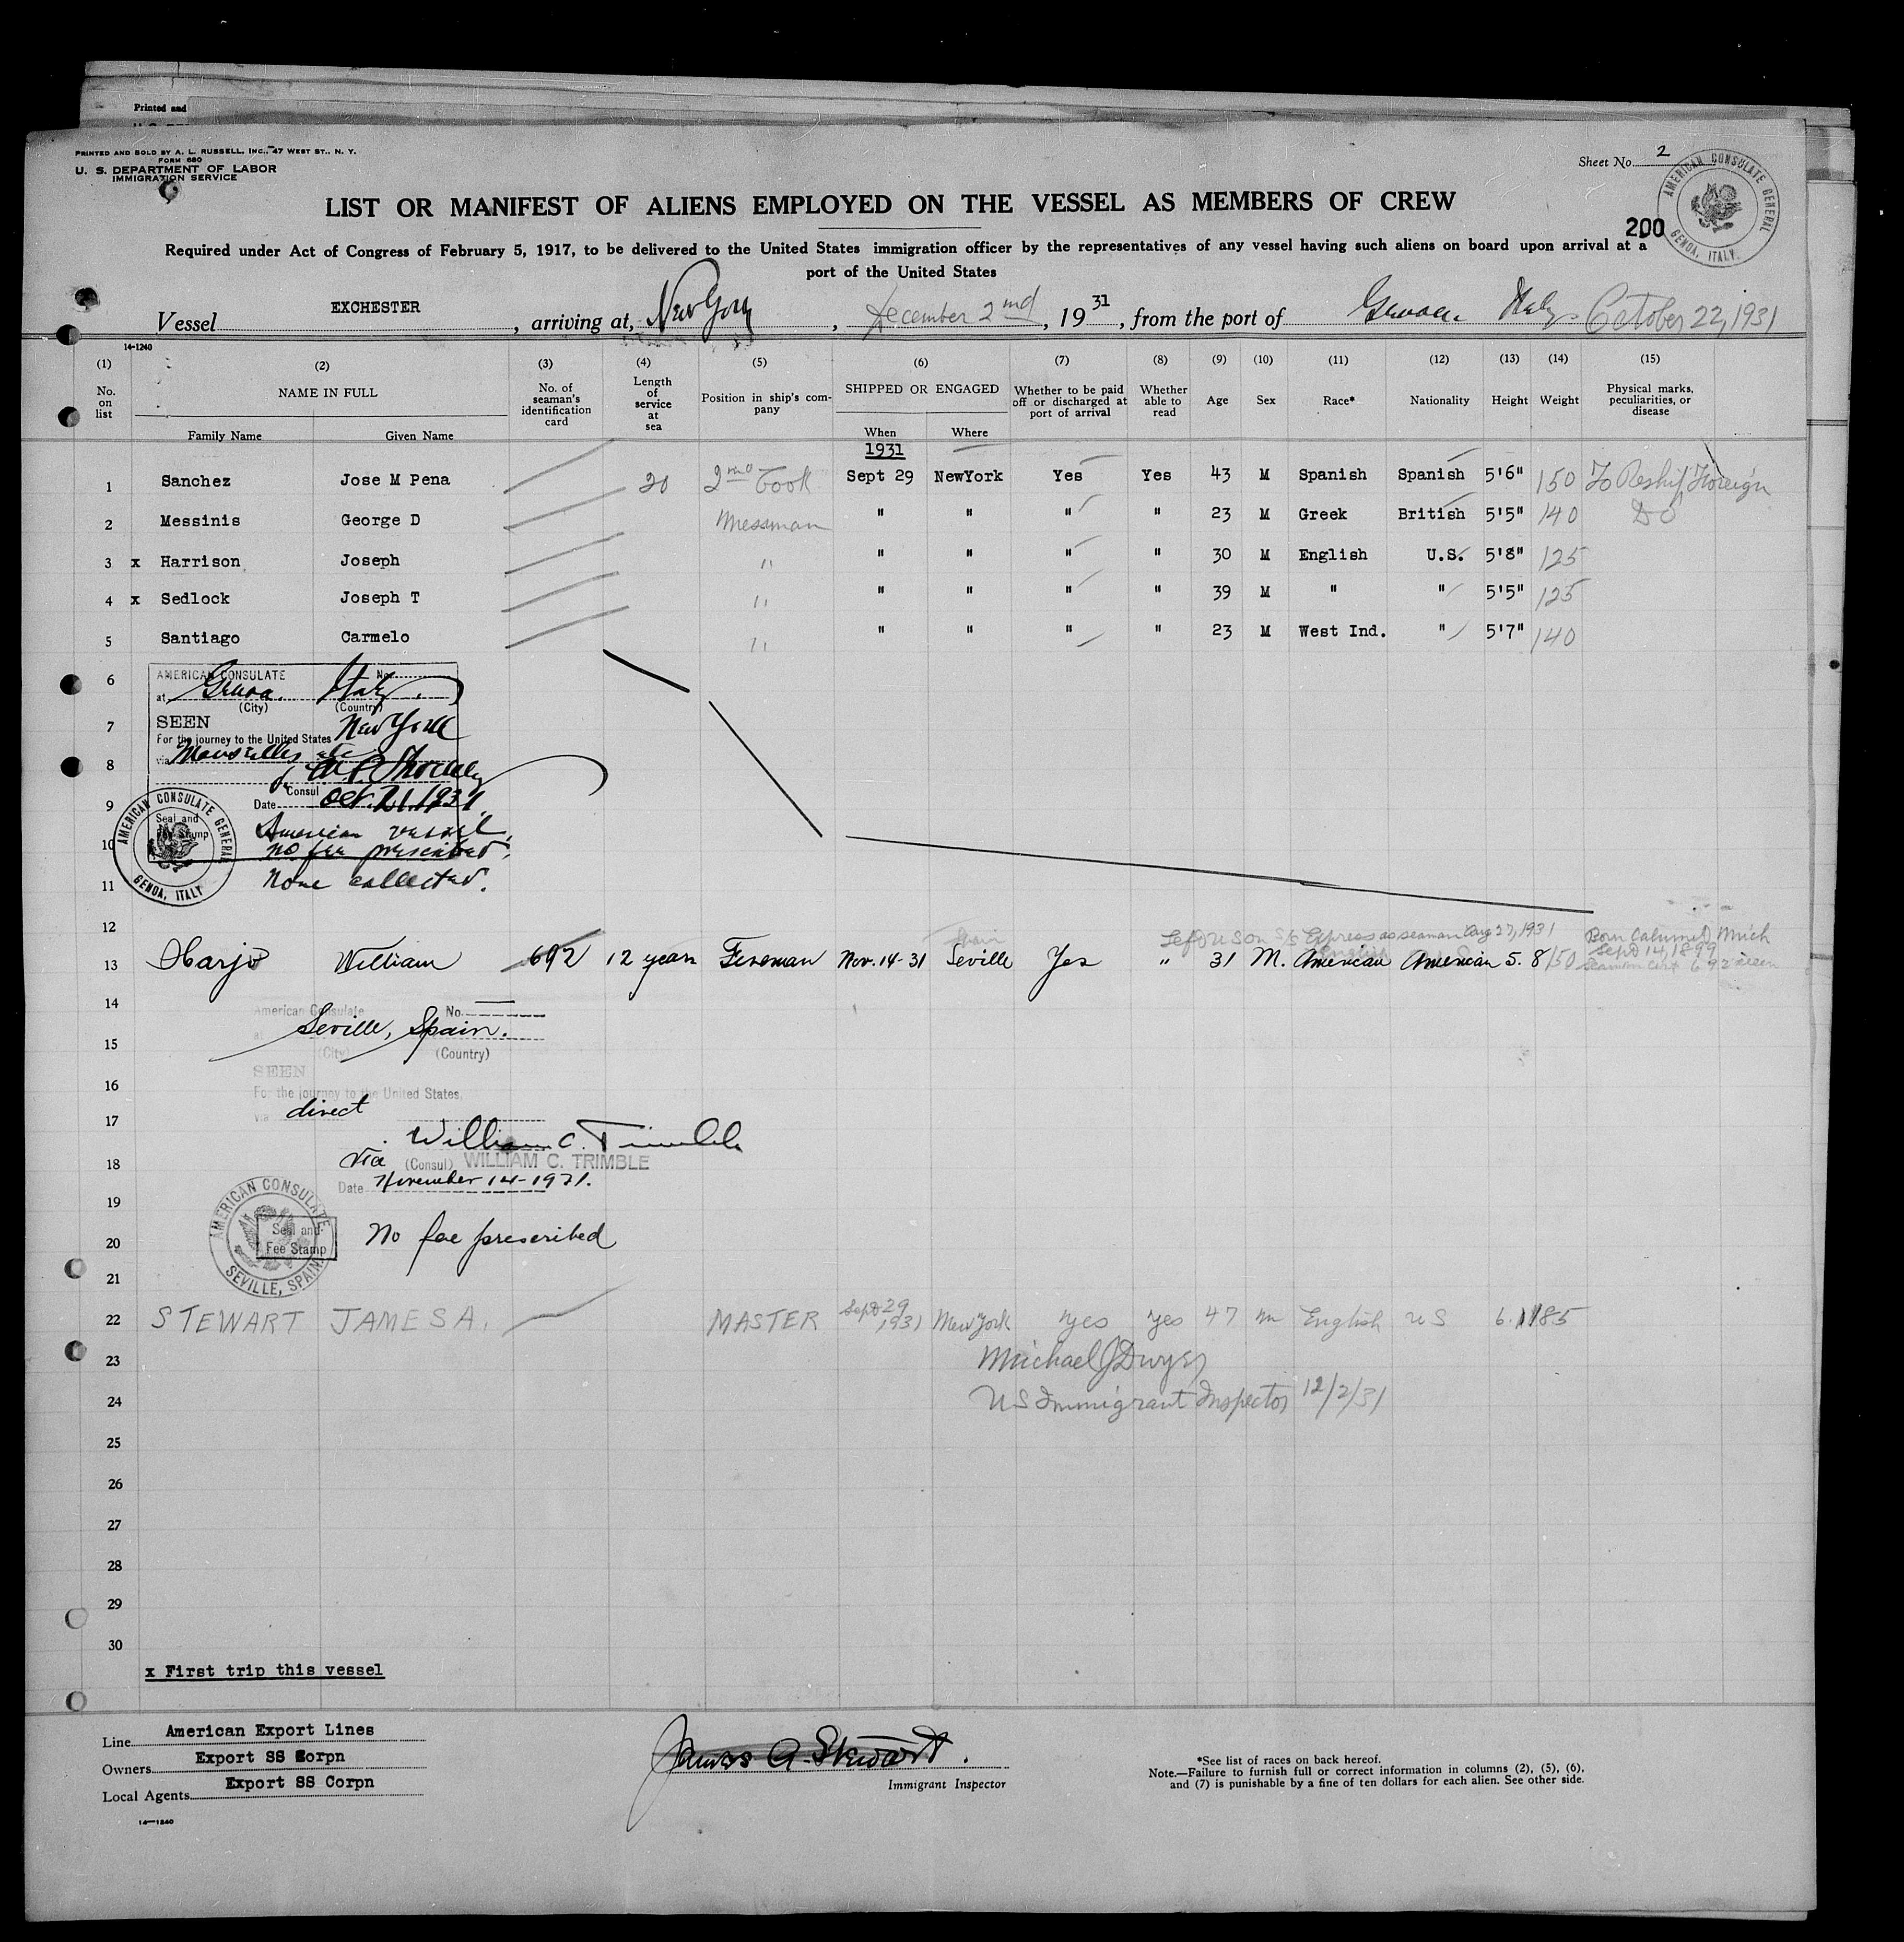 Printed and
PRINTED AND SOLD BY A. L. RUSSELL, INC., 47 WEST ST., N. Y.
FORM 680
U. S. DEPARTMENT OF LABOR
IMMIGRATION SERVICE
Sheet No. 2
AMERICAN CONSULATE GENERAL GENOA, ITALY.
LIST OR MANIFEST OF ALIENS EMPLOYED ON THE VESSEL AS MEMBERS OF CREW
200
Required under Act of Congress of February 5, 1917, to be delivered to the United States immigration officer by the representatives of any vessel having such aliens on board upon arrival at a
port of the United States
Vessel EXCHESTER, arriving at, New York, December 2nd, 1931, from the port of Genoa Italy October 22, 1931
14-1240
(1) (2) (3) (4) (5) (6) (7) (8) (9) (10) (11) (12) (13) (14) (15)
No. on list NAME IN FULL Family Name Given Name No. of seaman's identification card Length of service at sea Position in ship's company SHIPPED OR ENGAGED When Where Whether to be paid off or discharged at port of arrival Whether able to read Age Sex Race* Nationality Height Weight Physical marks, peculiarities, or disease
1931
1 Sanchez Jose M Pena 20 2nd Cook Sept 29 NewYork Yes Yes 43 M Spanish Spanish 5'6" 150 To Reship Foreign
2 Messinis George D Messman " " " " 23 M Greek British 5'5" 140 DO
3 x Harrison Joseph " " " " " 30 M English U.S. 5'8" 125
4 x Sedlock Joseph T " " " " " 39 M " " 5'5" 125
5 Santiago Carmelo " " " " " 23 M West Ind. " 5'7" 140
6
AMERICAN CONSULATE No.
at Genoa. Italy.
(City) (Country)
7
SEEN
For the journey to the United States New York
via Marseilles etc
8
Consul
9
Date Oct. 21. 1931
AMERICAN CONSULATE GENERAL GENOA, ITALY
Seal and
Fee Stamp
American vessel,
10
no fee prescribed,
11
none collected.
12
Spain
Left U S on S/S Express as seaman Aug 27, 1931
Born Calumet Mich
Sept 14, 1899
13 Harjo William 692 12 years Fireman Nov. 14-31 Seville Yes " 31 M. American American 5. 8 150 Seaman Cert 692 seen
14
American Consulate No.
at Seville, Spain.
15
(City) (Country)
SEEN
16
For the journey to the United States,
via direct
17
William C. Trimble
18
Via (Consul) WILLIAM C. TRIMBLE
Date November 14-1931.
19
AMERICAN CONSULATE SEVILLE, SPAIN
Seal and
Fee Stamp
20
No fee prescribed
21
22 STEWART JAMES A. MASTER Sept 29, 1931 New York yes yes 47 m English US 6.1 185
23 Michael J Dwyer
24 US Immigrant Inspector 12/2/31
25
26
27
28
29
30
x First trip this vessel
Line American Export Lines
Owners Export SS Corpn
Local Agents Export SS Corpn
14-1240
James A. Stewart.
Immigrant Inspector
*See list of races on back hereof.
Note.—Failure to furnish full or correct information in columns (2), (5), (6),
and (7) is punishable by a fine of ten dollars for each alien. See other side.